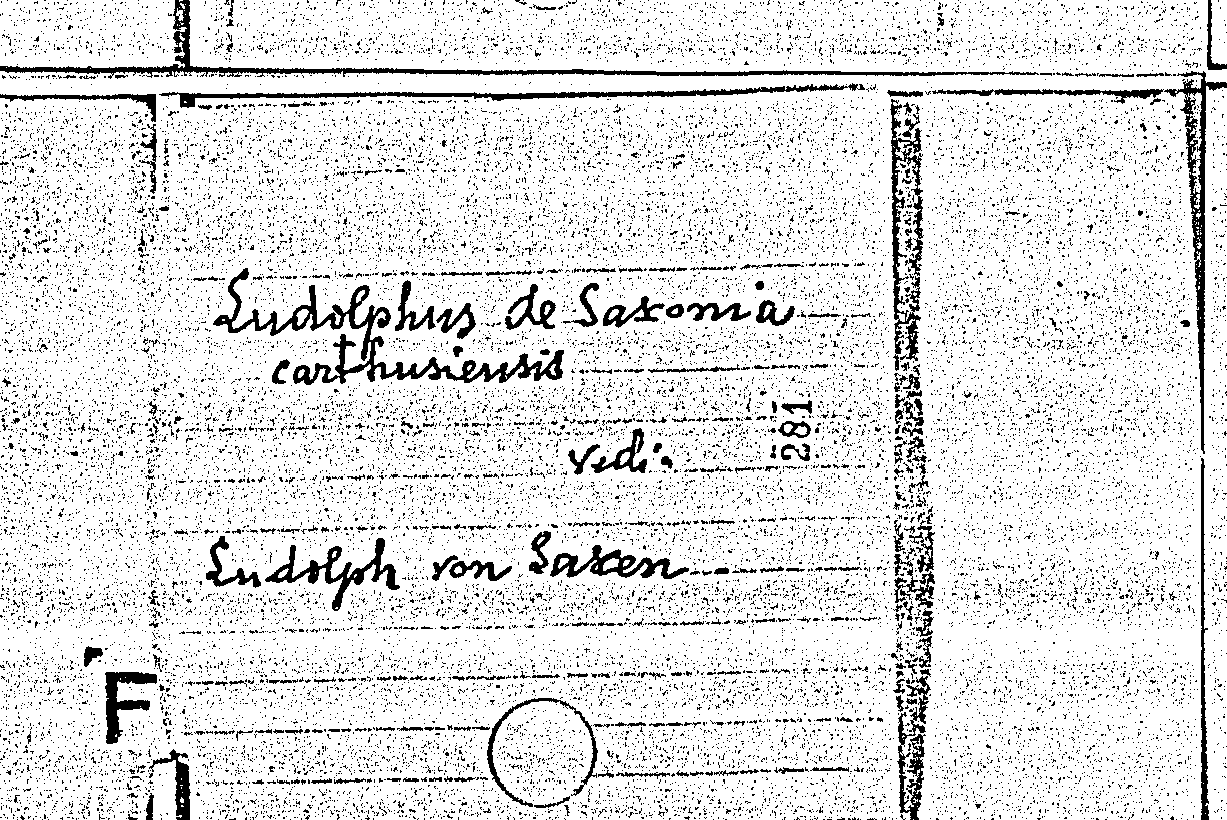 Ludolphus de Saxonia
carthusiensis
281
vedi.
Ludolph von Saxen
F